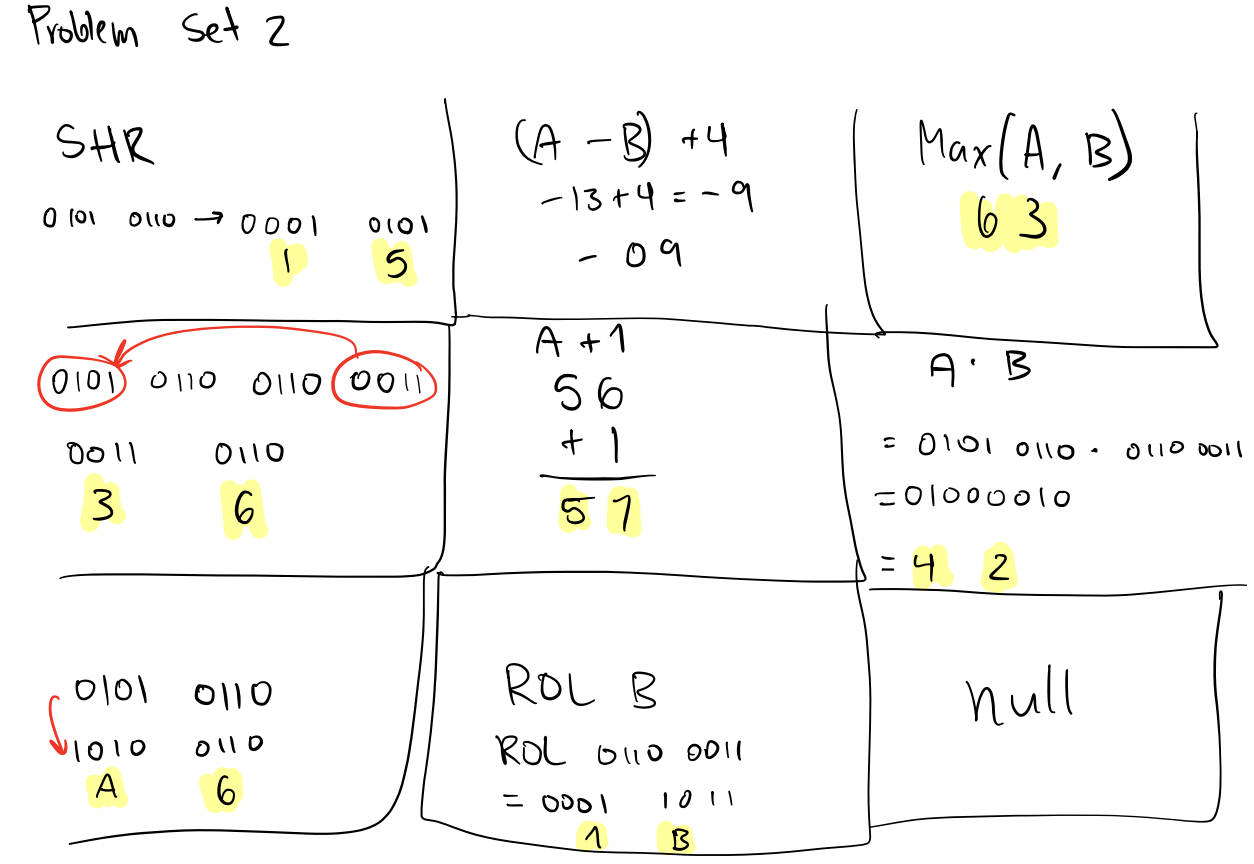 Problem Set 2
SHR
0101 0110 → 0001 0101
1 5
(A - B) + 4
-13 + 4 = - 9
- 09
Max(A, B)
63
0101 0110 0110 0011
0011 0110
3 6
A + 1
56
+ 1
57
A · B
= 0101 0110 · 0110 0011
= 01000010
= 4 2
0101 0110
1010 0110
A 6
ROL B
ROL 0110 0011
= 0001 1011
1 B
null